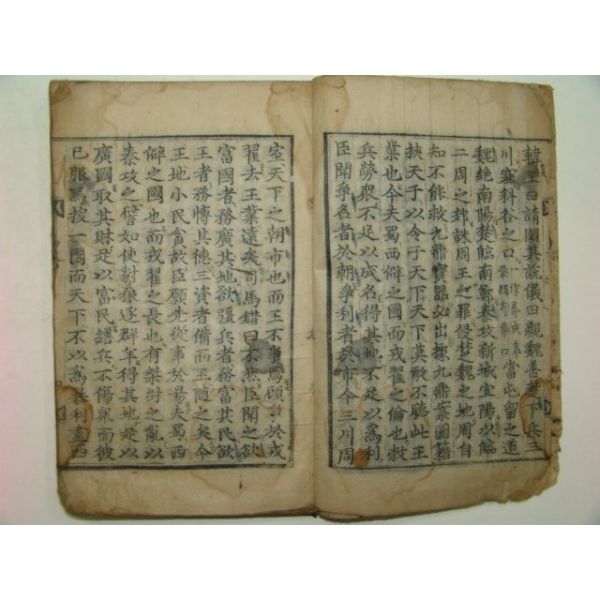 韓王曰請聞其說儀曰親魏善楚下兵三
川塞斜谷之口當屯留之道
魏絶南陽楚臨南鄭秦攻新城宜陽以臨
二周之郊誅周王之罪侵楚魏之地周自
知不能救九鼎寶器必出據九鼎案圖籍
挾天子以令於天下天下莫敢不聽此王
業也今夫蜀西僻之國而戎翟之倫也敝
兵勞衆不足以成名得其地不足以爲利
臣聞爭名者於朝爭利者於市今三川周
室天下之朝市也而王不爭焉顧爭於戎
翟去王業遠矣司馬錯曰不然臣聞之欲
富國者務廣其地欲彊兵者務富其民欲
王者務博其德三資者備而王隨之矣今
王地小民貧故臣願先從事於易夫蜀西
僻之國也而戎翟之長也有桀紂之亂以
秦攻之譬如使豺狼逐群羊得其地足以
廣國取其財足以富民繕兵不傷衆而彼
已服焉拔一國而天下不以爲暴利盡西